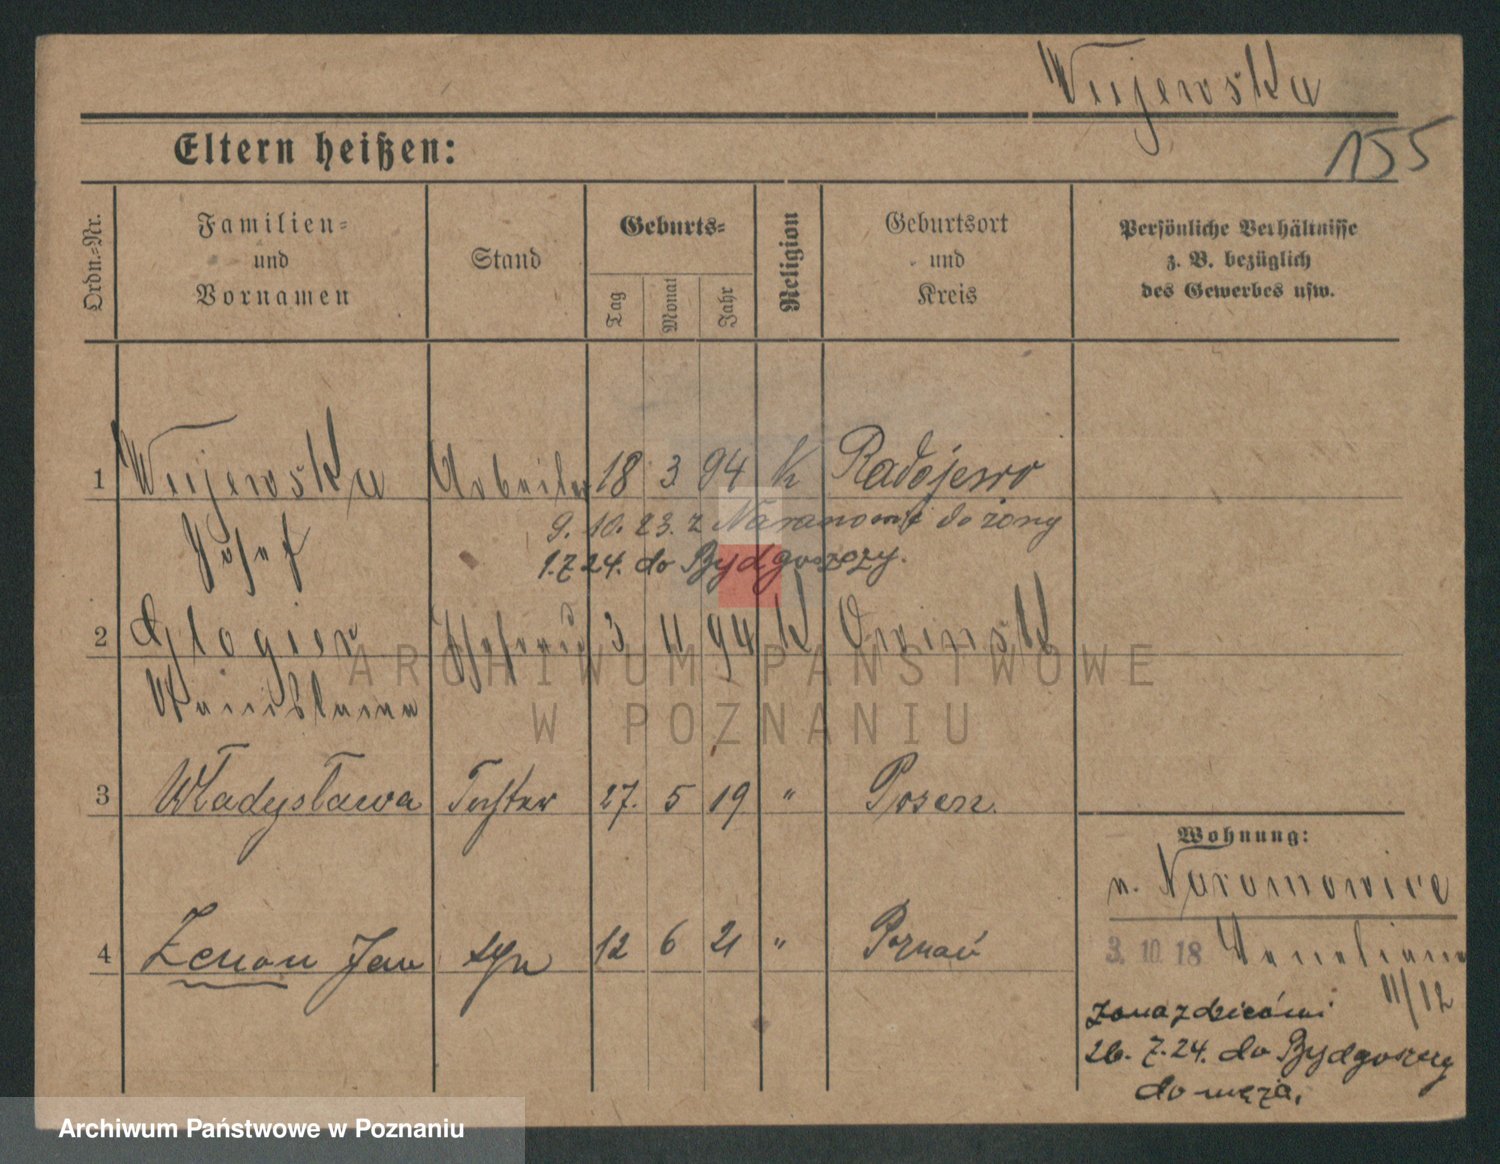 Wujewska
155
Eltern heißen:
Ordn.=Nr.
Familien=
und
Vornamen
Stand
Geburts=
Tag
Monat
Jahr
Religion
Geburtsort
und
Kreis
Persönliche Verhältnisse
z. B. bezüglich
des Gewerbes usw.
1 Wujewska Arbeiter 18 3 94 K Radojewo
Josef
9. 10. 23. z Naramowi do żony
1.7.24. do Bydgoszczy.
2 Glogier Ehefrau 3 11 94 K Owinsk
Stanislawa
3 Władysława Tochter 27. 5 19 " Posen.
4 Zenon Jan syn 12 6 21 " Poznań
Wohnung:
n. Naramowice
3. 10. 18
11/12
żona z dziećmi
26. 7. 24. do Bydgoszczy
do męża.
ARCHIWUM PAŃSTWOWE
W POZNANIU
Archiwum Państwowe w Poznaniu